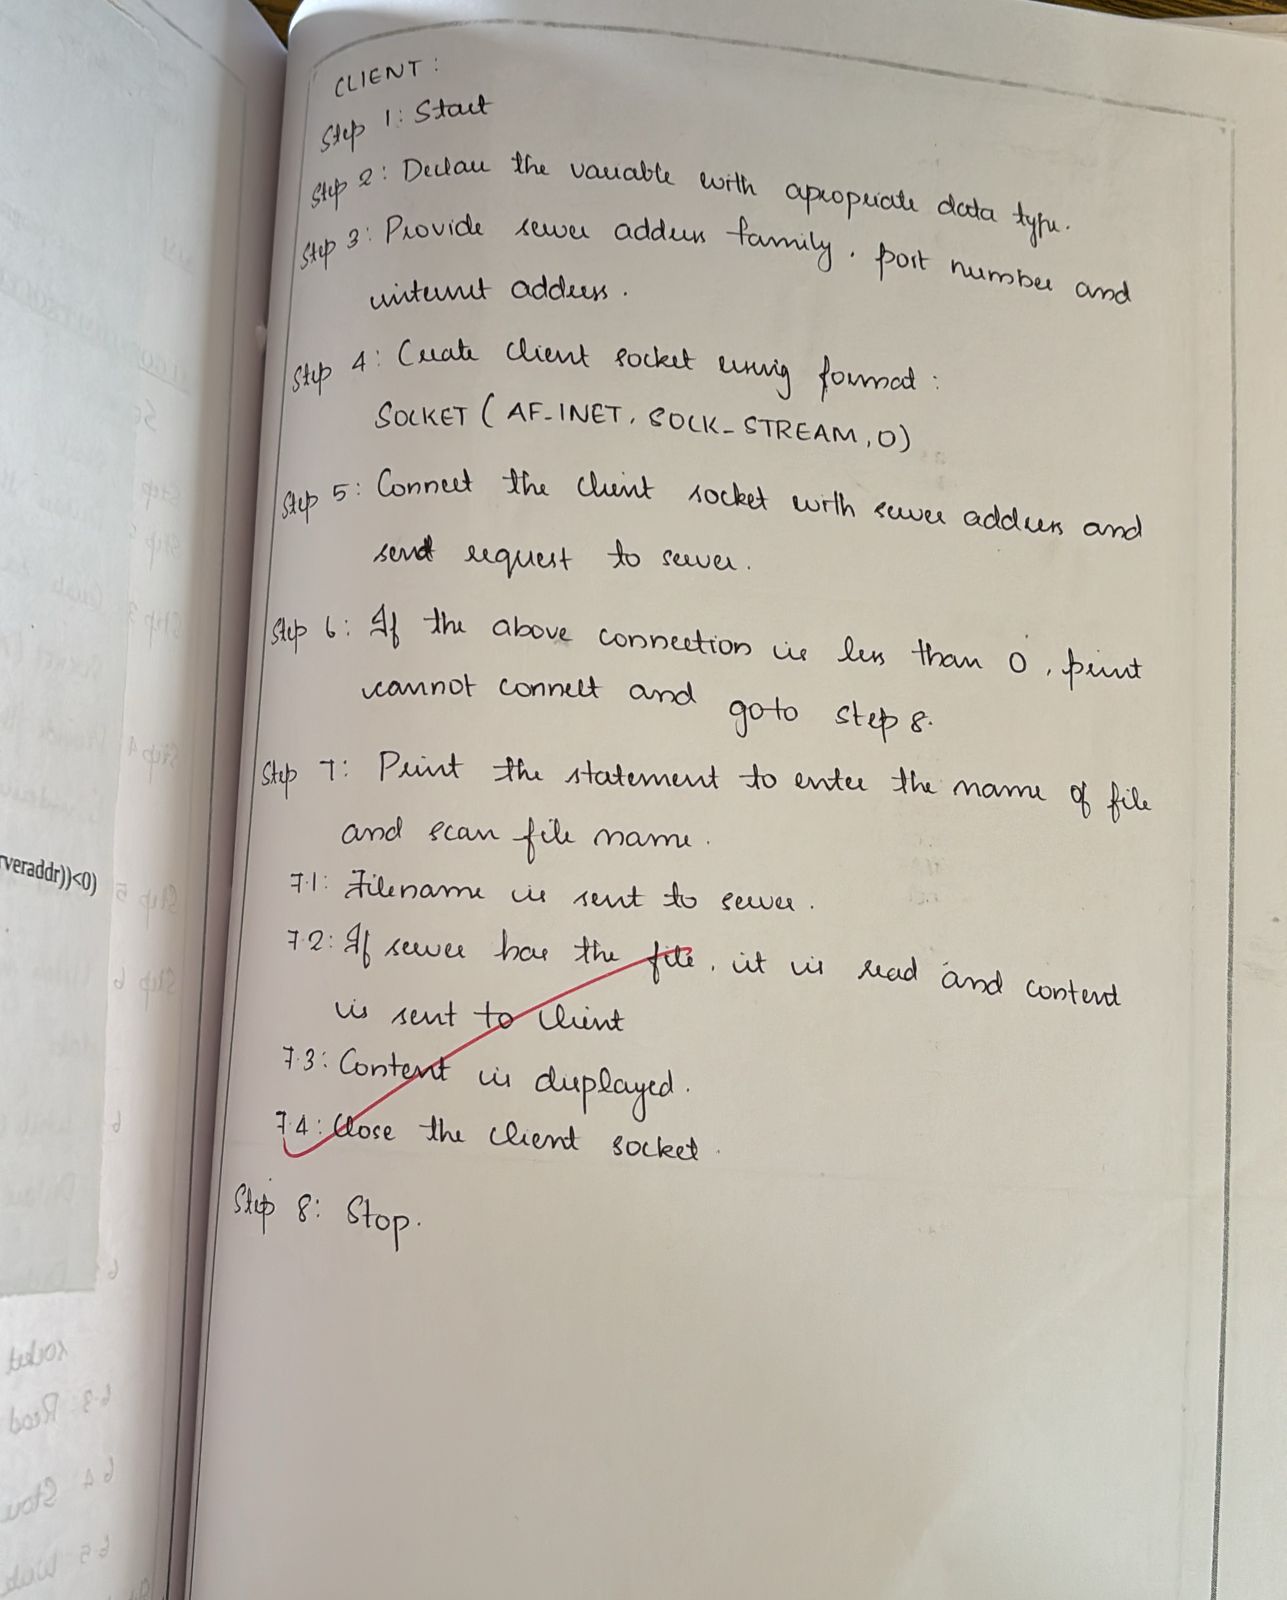 CLIENT:
Step 1: Start
Step 2: Declare the variable with apropriate data type.
Step 3: Provide server address family, port number and
internet address.
Step 4: Create client socket using format:
SOCKET ( AF_INET, SOCK_STREAM, 0)
Step 5: Connect the client socket with server address and
send request to server.
Step 6: If the above connection is less than 0, print
cannot connect and goto step 8.
Step 7: Print the statement to enter the name of file
and scan file name.
7.1: Filename is sent to server.
7.2: If server has the file, it is read and content
is sent to client
7.3: Content is displayed.
7.4: Close the client socket.
Step 8: Stop.
rveraddr))<0)